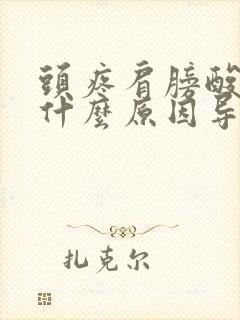 頭疼肩膀酸
什麼原因导
扎克尔